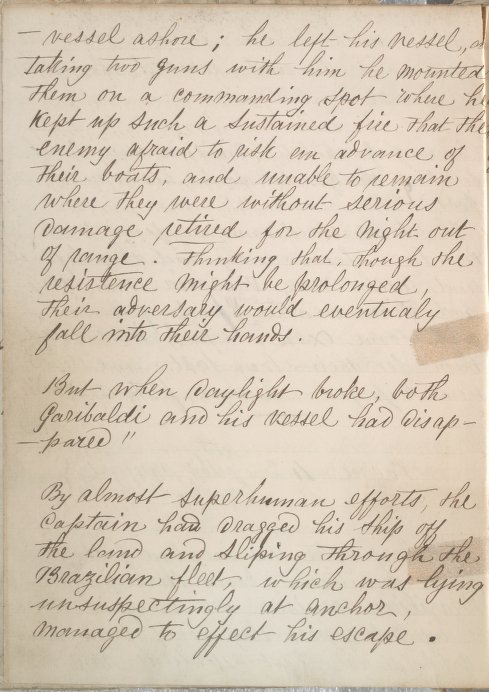 — vessel ashore ; he left his vessel, a
Taking two guns with him he mounted
them on a commanding spot where he
Kept up such a sustained fire that the
enemy afraid to risk em advance of
their boats, and unable to remain
where they were without serious
damage retired for the night out
of range. Thinking that, though the
resistence might be prolonged,
their adversary would eventualy
fall into their hands.
But when daylight broke, both
Garibaldi and his vessel had disap-
-pared"
By almost superhuman efforts, the
Captain had dragged his ship off
the land and sliping through the
Brazilian fleet, which was lying
unsuspectingly at anchor,
managed to effect his escape.